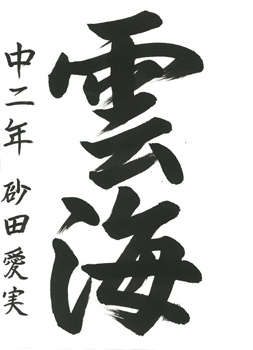 雲海
中二年 砂田愛実